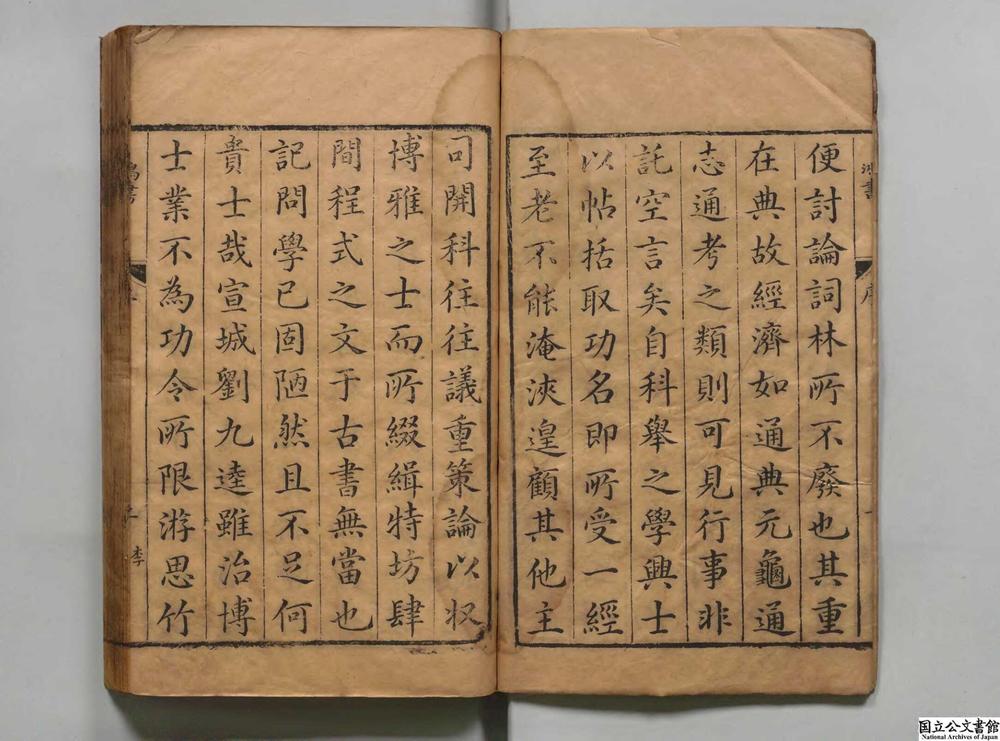 便討論詞林所不廢也其重
在典故經濟如通典元龜通
志通考之類則可見行事非
託空言矣自科舉之學興士
以帖括取功名即所受一經
至老不能淹浹遑顧其他主
司開科往往議重策論以収
博雅之士而所綴緝特坊肆
間程式之文于古書無當也
記問學已固陋然且不足何
貴士哉宣城劉九逵雖治博
士業不為功令所限游思竹
序
李
国立公文書館
National Archives of Japan